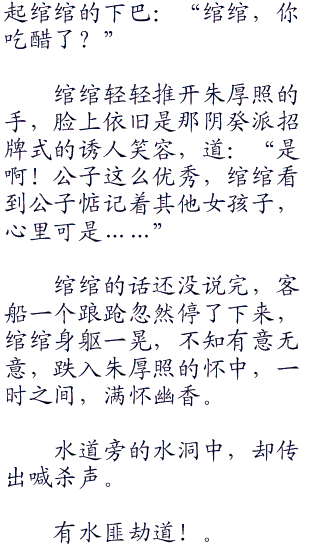 起绾绾的下巴：“绾绾，你
吃醋了？”
绾绾轻轻推开朱厚照的
手，脸上依旧是那阴癸派招
牌式的诱人笑容，道：“是
啊！公子这么优秀，绾绾看
到公子惦记着其他女孩子，
心里可是……”
绾绾的话还没说完，客
船一个踉跄忽然停了下来，
绾绾身躯一晃，不知有意无
意，跌入朱厚照的怀中，一
时之间，满怀幽香。
水道旁的水洞中，却传
出喊杀声。
有水匪劫道！。